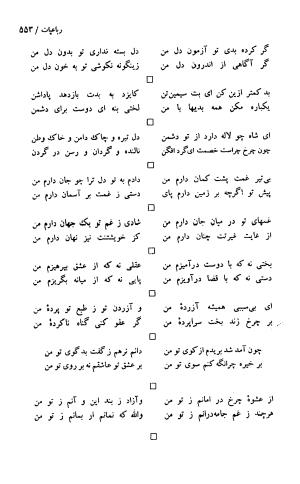 رباعیات / ۵۵۳
گر کرده بدی تو آزمون دل من دل بسته نداری تو بدون دل من
گر آگاهی از اندرون دل من زینگونه نکوشی تو به خون دل من
بد کمتر ازین کن ای بت سیمین‌تن کایزد به بدت بازدهد پاداشن
یکباره مکن همه بدیها با من لختی بنه ای دوست برای دشمن
ای شاه چو لاله دارد از تو دشمن دل تیره و چاک دامن و خاک وطن
چون چرخ چراست خصمت ای گرد افگن نالنده و گردان و رسن در گردن
بی‌تیر غمت پشت کمان دارم من دادم به تو دل ترا چو جان دارم من
پیش تو اگرچه بر زمین دارم پای دستی ز غمت بر آسمان دارم من
غمهای تو در میان جان دارم من شادی ز غم تو یک جهان دارم من
از غایت غیرتت چنان دارم من کز خویشتنت نیز نهان دارم من
بختی نه که با دوست درآمیزم من عقلی نه که از عشق بپرهیزم من
دستی نه که با قضا درآویزم من پایی نه که از میانه بگریزم من
ای بی‌سببی همیشه آزردهٔ من و آزردن تو ز طبع تو پردهٔ من
بر چرخ زند بخت سراپردهٔ من گر عفو کنی گناه ناکردهٔ من
چون آمد شد بریدم از کوی تو من دانم نرهم ز گفت بدگوی تو من
بر خیره چرا نگه کنم سوی تو من بر عشق تو عاشقم نه بر روی تو من
از عشوهٔ چرخ در امانم ز تو من وآزاد ز بند این و آنم ز تو من
هرچند ز غم جامه‌درانم ز تو من والله که نمانم ار بمانم ز تو من